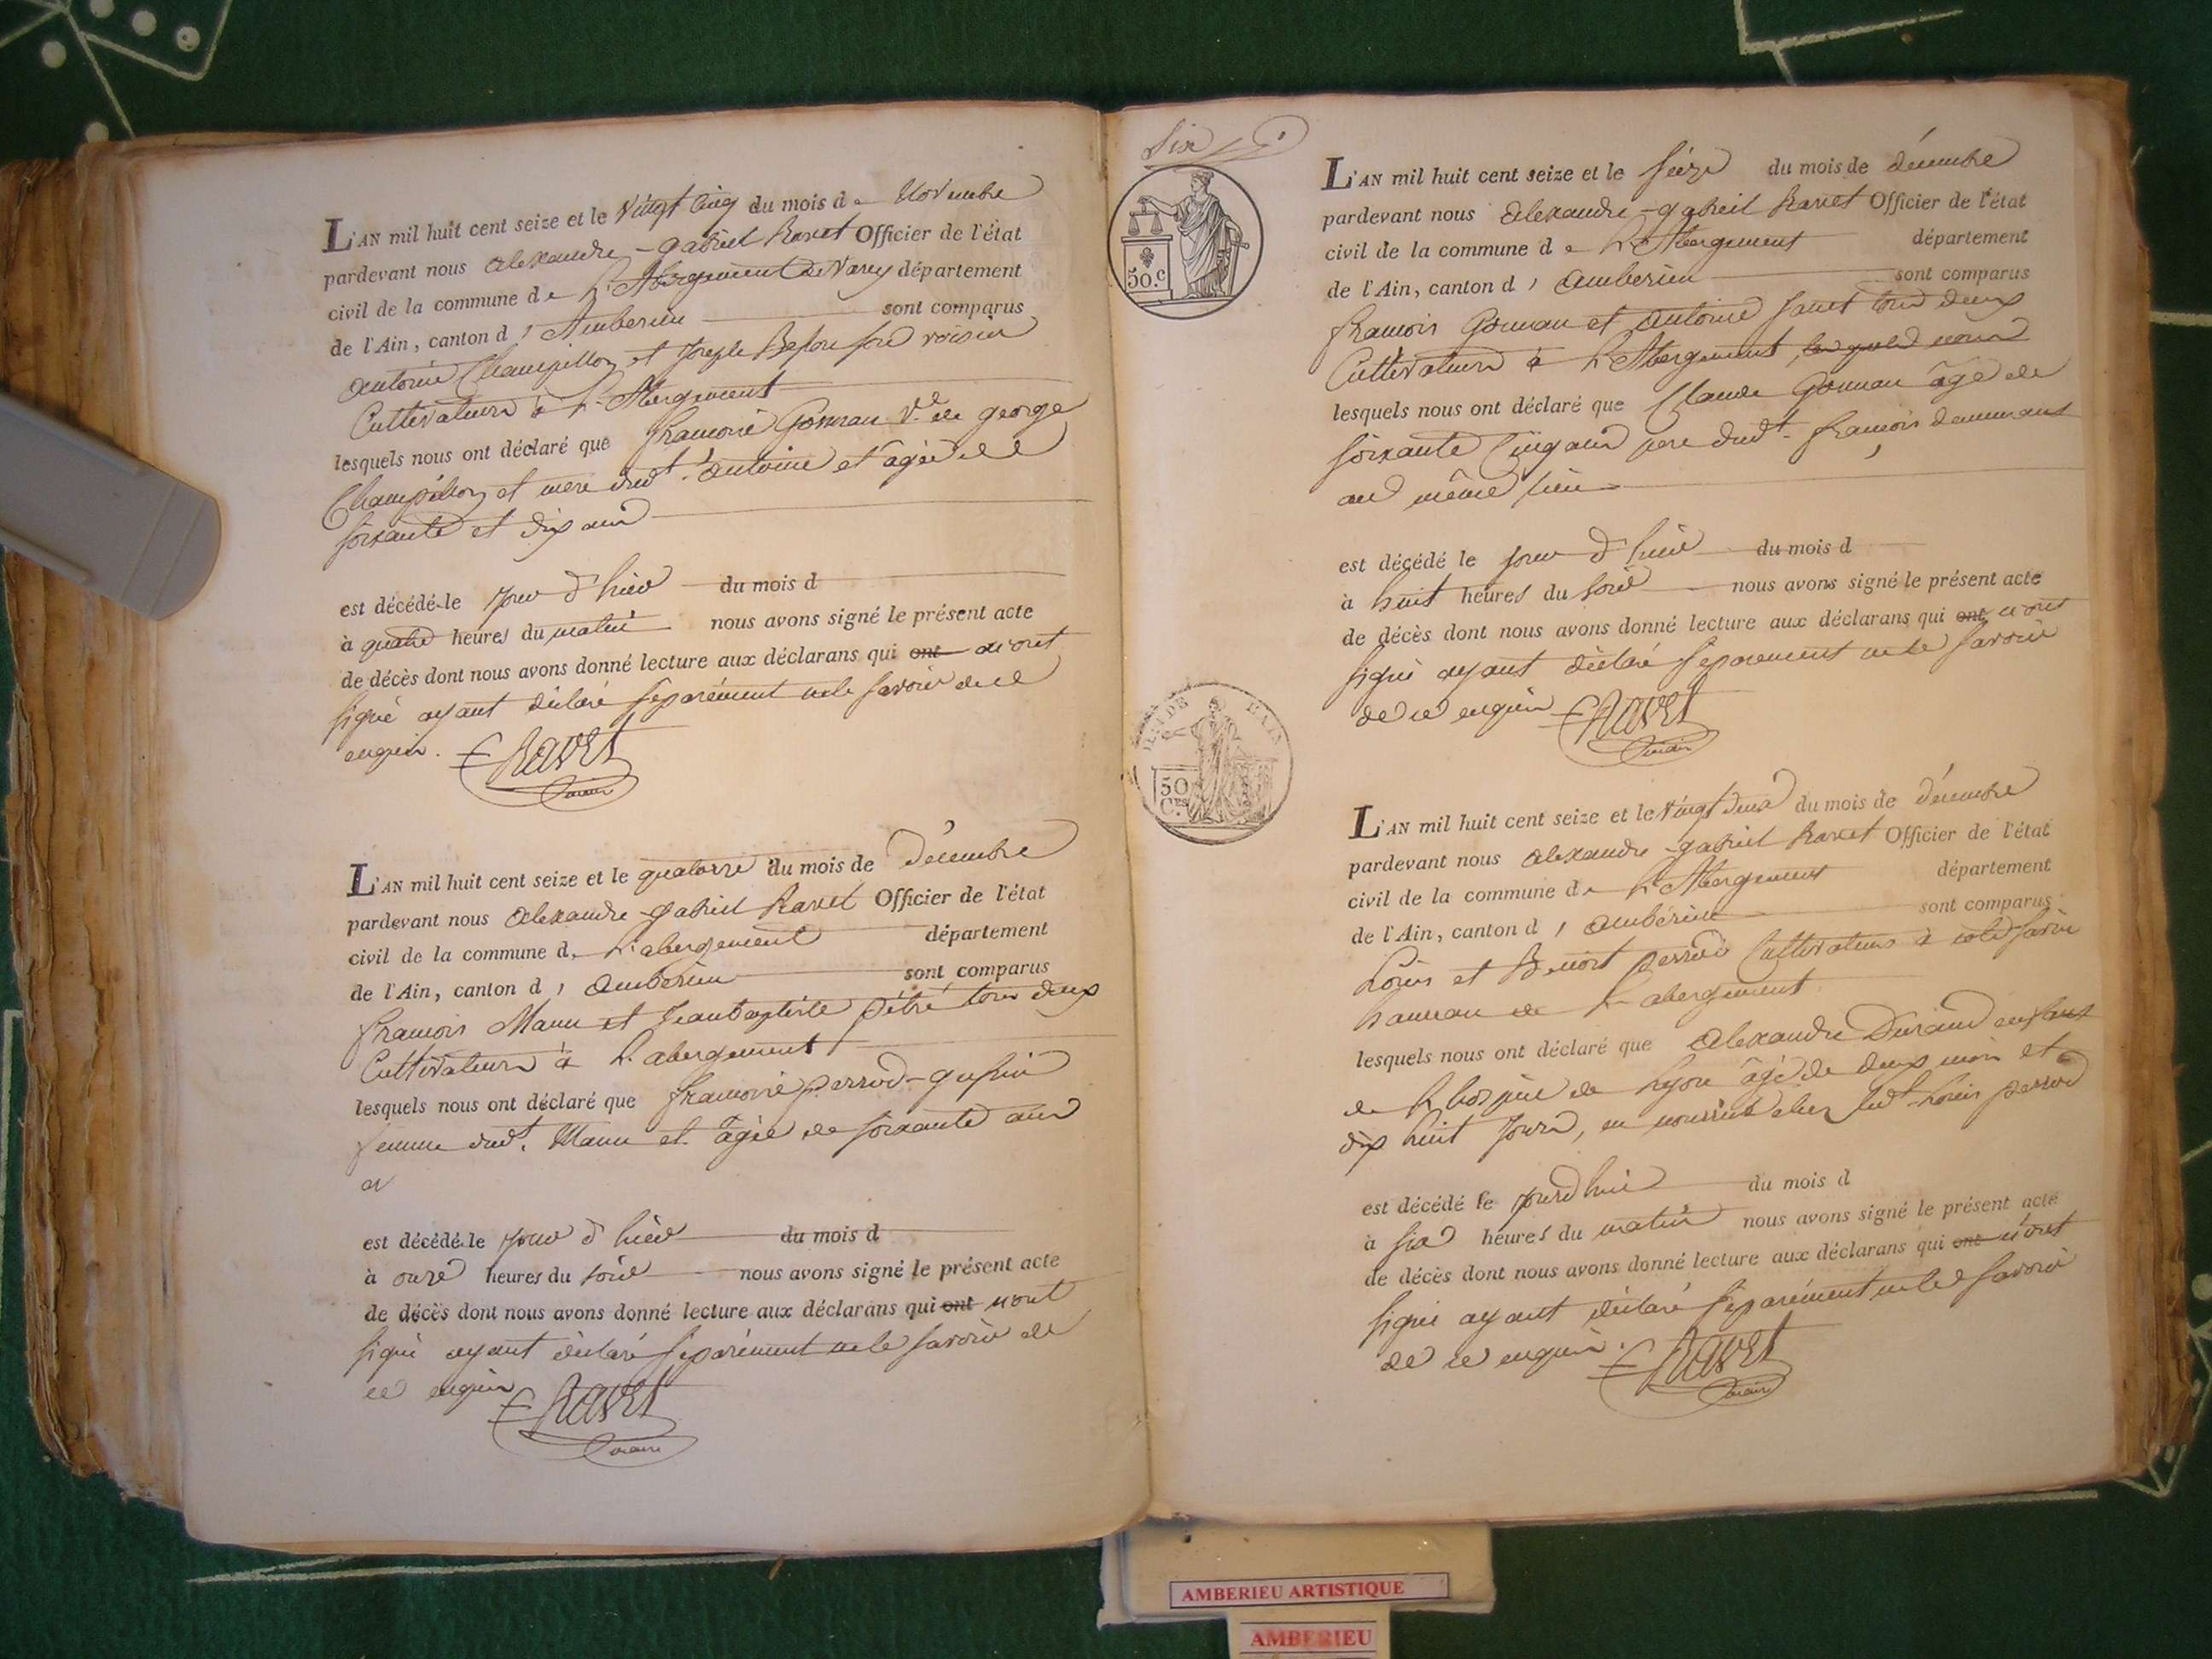 L'AN mil huit cent seize et le vingt cinq du mois de Novembre
pardevant nous alexandre-gabriel Ravet Officier de l'état
civil de la commune de L'Abergement de Varey département
de l'Ain, canton d'Amberieu sont comparus
antoine Champillon et Joseph voisin
Cultivateurs à L'Abergement
lesquels nous ont déclaré que françoise Gonnan Ve. de george
Champillon et mere dudt. antoine et agée de
soixante et dix ans
est décédé le jour d'hier du mois d
à quatre heures du matin nous avons signé le présent acte
de décès dont nous avons donné lecture aux déclarans qui ont n'ont
signé ayant déclaré séparément ne le savoir de ce
enquis. Ravet
maire
L'AN mil huit cent seize et le quatorze du mois de décembre
pardevant nous alexandre-gabriel Ravet Officier de l'état
civil de la commune de L'abergement département
de l'Ain, canton d'amberieu sont comparus
françois Manu et Jeanbaptiste pétré tous deux
Cultivateurs à L'abergement
lesquels nous ont déclaré que françoise perrod-
femme dudt. Manu et âgée de soixante ans
est décédé le jour d'hier du mois d
à onze heures du soir nous avons signé le présent acte
de décès dont nous avons donné lecture aux déclarans qui ont n'ont
signé ayant déclaré séparément ne le savoir de
ce enquis Ravet
maire
Six
50.c
50
Ces
L'AN mil huit cent seize et le seize du mois de décembre
pardevant nous alexandre-gabriel Ravet Officier de l'état
civil de la commune de L'Abergement département
de l'Ain, canton d'amberieu sont comparus
françois Gonnan et antoine tous deux
Cultivateurs à L'Abergement
lesquels nous ont déclaré que Claude Gonnan âgé de
soixante Cinq ans pere dudt. françois demeurant
au même lieu
est décédé le jour d'hier du mois d
à huit heures du soir nous avons signé le présent acte
de décès dont nous avons donné lecture aux déclarans qui ont n'ont
signé ayant déclaré séparement ne le savoir
de ce enquis Ravet
maire
L'AN mil huit cent seize et le vingt deux du mois de décembre
pardevant nous alexandre-gabriel Ravet Officier de l'état
civil de la commune de L'Abergement département
de l'Ain, canton d'ambérieu sont comparus
Louis et Benoit perrod Cultivateurs à
hameau de L'abergement
lesquels nous ont déclaré que alexandre Durand enfant
de L'hospice de Lyon âgé de deux mois et
dix huit jours, en nourrice chez ledt. Louis perrod
est décédé le jourd'hui du mois d
à six heures du matin nous avons signé le présent acte
de décès dont nous avons donné lecture aux déclarans qui ont n'ont
signé ayant déclaré séparément ne le savoir
de ce enquis. Ravet
maire
AMBERIEU ARTISTIQUE
AMBERIEU